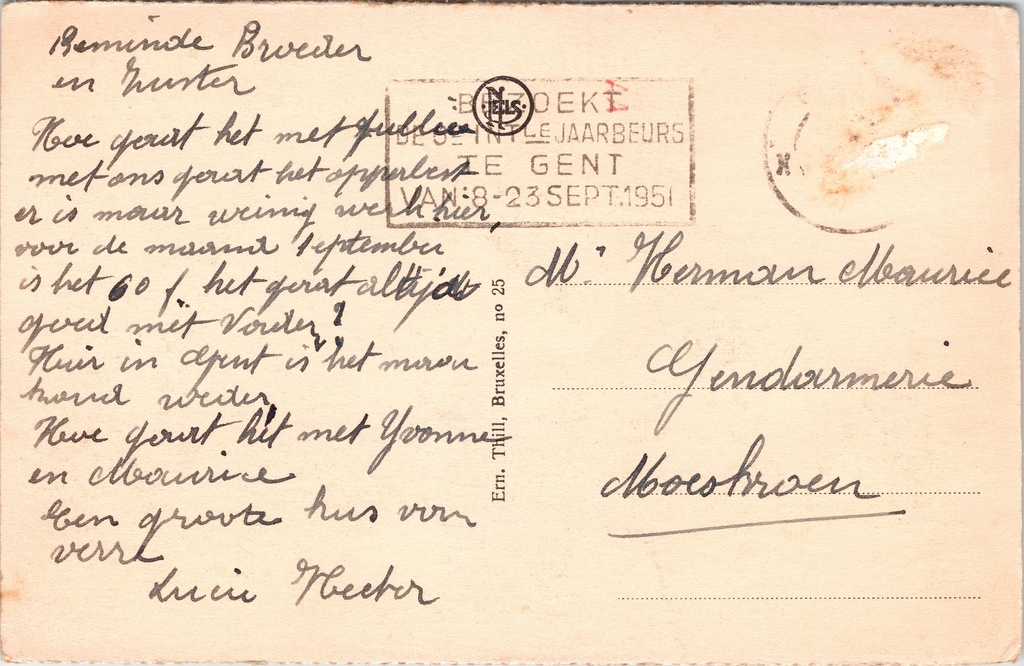 Beminde Broeder
en Zuster
Hoe gaat het met jullie
met ons gaat het opperbest
er is maar weinig werk hier,
voor de maand September
is het 60 f het gaat altijd
goed met Vader?
Hier in Gent is het maar
weder,
Hoe gaat het met Yvonne
en Maurice
Een groote kus van
verre
Lucie Hector
NELS
BEZOEKT
DE 6E INTLE JAARBEURS
TE GENT
VAN 8-23 SEPT. 1951
Ern. Thill, Bruxelles, no 25
Mr Herman Maurice
Gendarmerie
Moeskroen